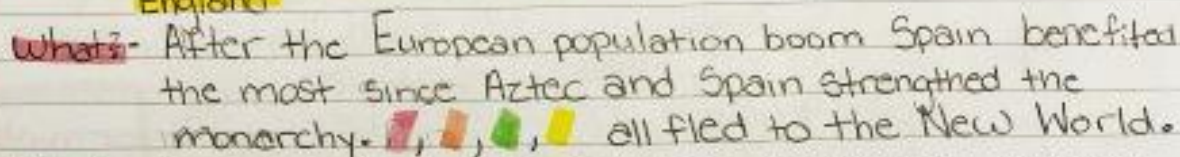 England
What?- After the European population boom Spain benefited
the most since Aztec and Spain strengthed the
monarchy. , , , all fled to the New World.